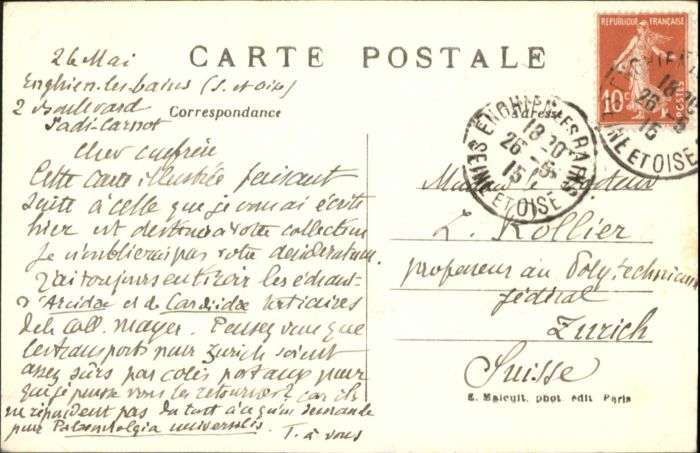 CARTE POSTALE
Correspondance
Adresse
26 Mai
Enghien-les-bains (S. et Oise)
2 Boulevard
Sadi-Carnot
Cher confrère
Cette carte illustrée faisant
suite à celle que je vous ai écrite
hier est destinée à votre collection
Je n'oublierai pas votre desideratum.
J'ai toujours en tiroir les échant.
d'Arcidae et de Cardiidae tertiaires
de la coll. Mayer. Pensez vous que
les transports pour Zurich soient
assez sûrs par colis postaux pour
que je puisse vous les retourner? car ils
ne répondent pas du tout à ce qu'on demande
pour Palaeontologia universalis
T. à vous
Monsieur le Docteur
L. Rollier
professeur au Polytechnicum
fédéral
Zurich
Suisse
E. Malcuit, phot. édit. Paris
REPUBLIQUE FRANÇAISE
10c
POSTES
ENGHIEN-LES-BAINS
18 30
26 - 5
15
SEINE ET OISE
18 30
26 5
15
SEINE ET OISE